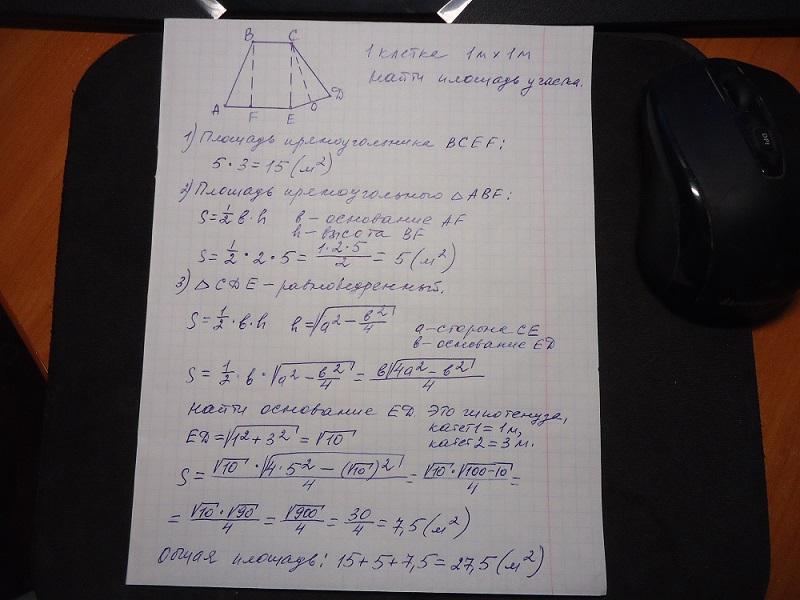 B C
A F E O D
1 клетка 1м х 1м
Найти площадь участка.
1) Площадь прямоугольника BCEF:
5 · 3 = 15 (м²)
2) Площадь прямоугольного △ABF:
S = 1/2 b · h b – основание AF
h – высота BF
S = 1/2 · 2 · 5 = (1·2·5)/2 = 5 (м²)
3) △CDE – равнобедренный.
S = 1/2 · b · h h = √(a² − b²/4)
a – сторона CE
b – основание ED
S = 1/2 · b · √(a² − b²/4) = b√(4a² − b²)/4
Найти основание ED. Это гипотенуза,
катет 1 = 1м,
ED = √(1² + 3²) = √10 катет 2 = 3 м.
S = √10 · √(4 · 5² − (√10)²)/4 = √10 · √(100−10)/4 =
= √10 · √90/4 = √900/4 = 30/4 = 7,5 (м²)
Общая площадь: 15 + 5 + 7,5 = 27,5 (м²)